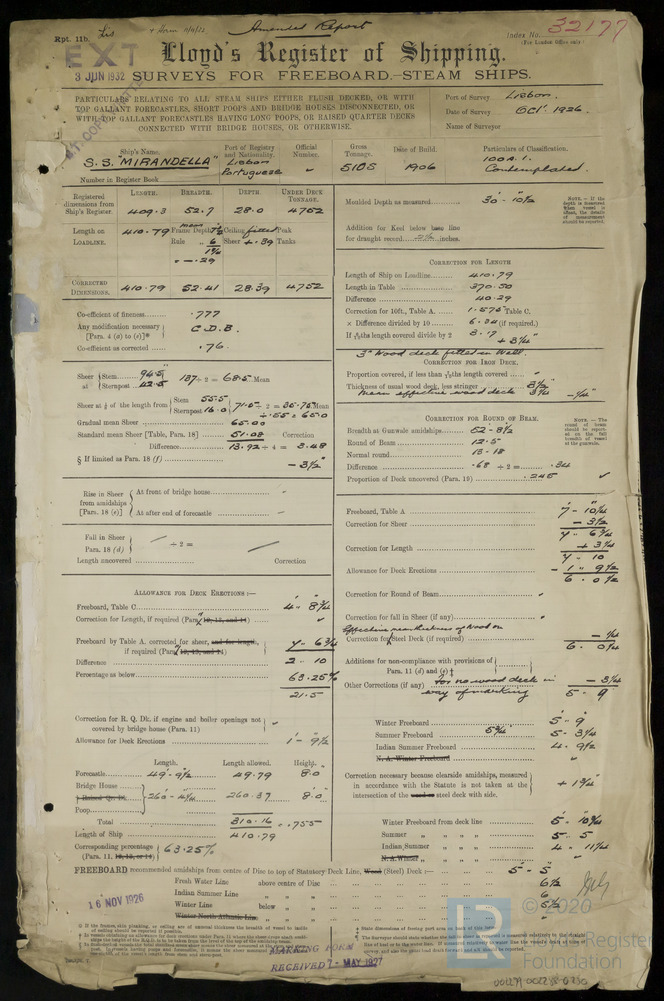 Rpt. 11b.
Amended Report
Index No. 32177
(For London Office only)
EXT
Lloyd's Register of Shipping.
3 JUN 1932
SURVEYS FOR FREEBOARD.—STEAM SHIPS.
PARTICULARS RELATING TO ALL STEAM SHIPS EITHER FLUSH DECKED, OR WITH
TOP GALLANT FORECASTLES, SHORT POOPS AND BRIDGE HOUSES DISCONNECTED, OR
WITH TOP GALLANT FORECASTLES HAVING LONG POOPS, OR RAISED QUARTER DECKS
CONNECTED WITH BRIDGE HOUSES, OR OTHERWISE.
Port of Survey Lisbon.
Date of Survey Oct. 1926.
Name of Surveyor
Ship's Name. Port of Registry and Nationality. Official Number. Gross Tonnage. Date of Build. Particulars of Classification.
S.S. "MIRANDELLA" Lisbon Portuguese 5105 1906 100A.1. Contemplated.
Number in Register Book
LENGTH. BREADTH. DEPTH. UNDER DECK TONNAGE.
Registered dimensions from Ship's Register. 409.3 52.7 28.0 4752
Length on LOADLINE. 410.79 Frame Depth Ceiling fitted Peak
Rule 6 Sheer +.39 Tanks
- .29
CORRECTED DIMENSIONS. 410.79 52.41 28.39 4752
Moulded Depth as measured 30' - 10½"
Addition for Keel below base line
for draught record inches.
NOTE.—If the depth is measured when vessel is afloat, the details of measurement should be reported.
Co-efficient of fineness .777
Any modification necessary [Para. 4 (a) to (e)]* C.D.B.
Co-efficient as corrected .76
CORRECTION FOR LENGTH
Length of Ship on Loadline 410.79
Length in Table 370.50
Difference 40.29
Correction for 10ft., Table A. 1.575 Table C.
× Difference divided by 10 6.34 (if required).
If 6/10ths length covered divide by 2 3.17
+ 3¼"
Sheer at Stem 94.5" Sternpost 42.5 137 ÷ 2 = 68.5 Mean
Sheer at ⅛ of the length from Stem 55.5 Sternpost 16.0 71.5 ÷ 2 = 35.75 Mean
÷ .55 = 65.0
Gradual mean Sheer 65.00
Standard mean Sheer [Table, Para. 18] 51.08 Correction
Difference 13.92 ÷ 4 = 3.48
§ If limited as Para. 18 (f) - 3½"
3" Wood deck fitted in Well.
CORRECTION FOR IRON DECK.
Proportion covered, if less than 7/10ths length covered
Thickness of usual wood deck, less stringer 3½"
Mean effective wood deck 3¼ - ¼"
CORRECTION FOR ROUND OF BEAM.
Breadth at Gunwale amidships 52 - 8½
Round of Beam 12.5"
Normal round 13.18
Difference .68 ÷ 2 = .34
Proportion of Deck uncovered (Para. 19) .245
NOTE.—The round of beam should be reported on the full breadth of vessel at the gunwale.
Rise in Sheer from amidships [Para. 18 (e)]
At front of bridge house
At after end of forecastle
Fall in Sheer Para. 18 (d) ÷ 2 =
Length uncovered Correction
Freeboard, Table A 7 - 10¼
Correction for Sheer - 3½
7 - 6¾
Correction for Length + 3¼
7 - 10
Allowance for Deck Erections - 1 - 9½
6 - 0½
Correction for Round of Beam
Correction for fall in Sheer (if any)
Effective mean thickness of Wood on
Correction for Steel Deck (if required) - ¼
6 - 0¼
Additions for non-compliance with provisions of Para. 11 (d) and (e) †
Other Corrections (if any) For no wood deck in way of marking - 3¼
5 - 9
ALLOWANCE FOR DECK ERECTIONS :—
Freeboard, Table C 4 - 8¾
Correction for Length, if required (Para. 12, 13, and 14)
Freeboard by Table A. corrected for sheer, and for length, if required (Para. 12, 13, and 14) 7 - 6¾
Difference 2 - 10
Percentage as below 63.25%
21.5
Correction for R. Q. Dk. if engine and boiler openings not covered by bridge house (Para. 11)
Allowance for Deck Erections 1 - 9½
Winter Freeboard 5 - 9"
Summer Freeboard 5¾ 5 - 3¼
Indian Summer Freeboard 4 - 9½
N. A. Winter Freeboard
Length. Length allowed. Height.
Forecastle 49' - 9½ 49.79 8.0
Bridge House 260' - 4½ 260.37 8.0
Poop
Total 310.16 = .755
Length of Ship 410.79
Corresponding percentage (Para. 11, 12, 13, or 14) 63.25%
Correction necessary because clearside amidships, measured in accordance with the Statute is not taken at the intersection of the wood or steel deck with side. + 1¾"
Winter Freeboard from deck line 5' - 10¾
Summer 5 - 5
Indian Summer 4 - 11¼
N. A. Winter
FREEBOARD recommended amidships from centre of Disc to top of Statutory Deck Line, Wood (Steel) Deck :— 5' - 5"
Fresh Water Line above centre of Disc 6½
Indian Summer Line 6
Winter Line below 5½
Winter North Atlantic Line
16 NOV 1926
MARKING FORM
RECEIVED 7 - MAY 1927
© 2020
Lloyd's Register
Foundation